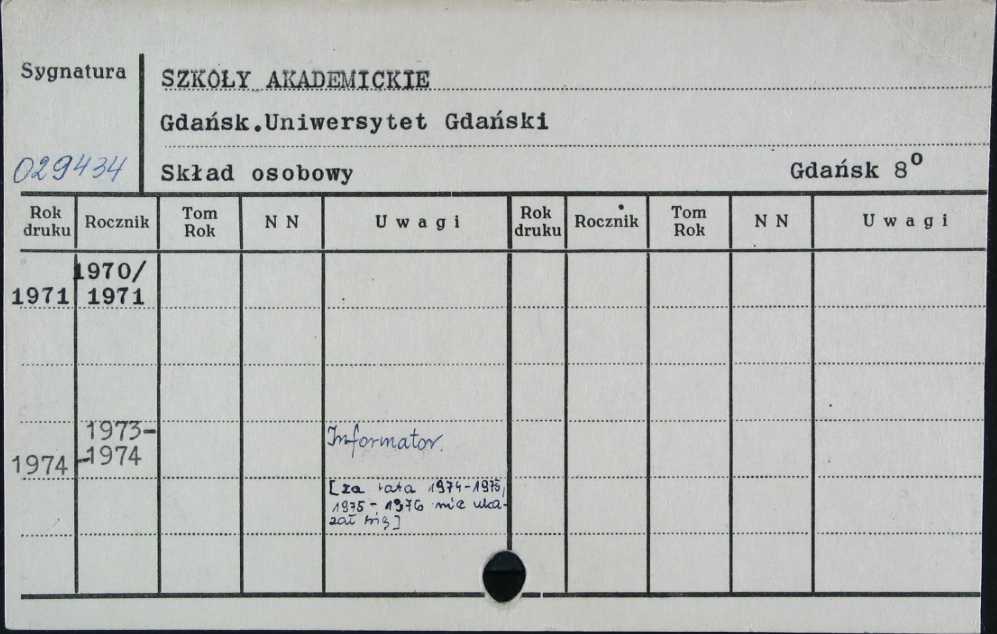 Sygnatura
SZKOŁY AKADEMICKIE
Gdańsk.Uniwersytet Gdański
029434
Skład osobowy Gdańsk 8°
Rok druku Rocznik Tom Rok N N Uwagi Rok druku Rocznik Tom Rok N N Uwagi
1970/
1971 1971
1973-
1974 -1974
Informator.
[za lata 1974-1975,
1975-1976 nie uka-
zał się]